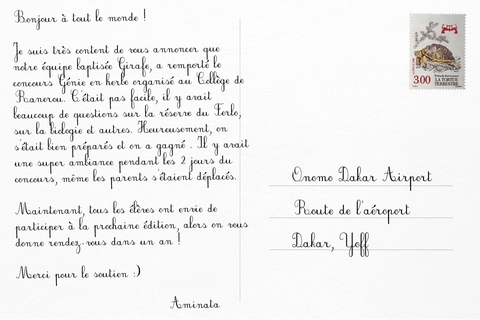 Bonjour à tout le monde !
Je suis très content de vous annoncer que
notre équipe baptisée Girafe, a remporté le
concours Génie en herbe organisé au Collège de
Ranerou. C'était pas facile, il y avait
beaucoup de questions sur la réserve du Ferlo,
sur la biologie et autres. Heureusement, on
s'était bien préparés et on a gagné . Il y avait
une super ambiance pendant les 2 jours du
concours, même les parents s'étaient déplacés.
Maintenant, tous les élèves ont envie de
participer à la prochaine édition, alors on vous
donne rendez-vous dans un an !
Merci pour le soutien :)
Aminata
300
LA TORTUE
TERRESTRE
Onomo Dakar Airport
Route de l'aéroport
Dakar, Yoff